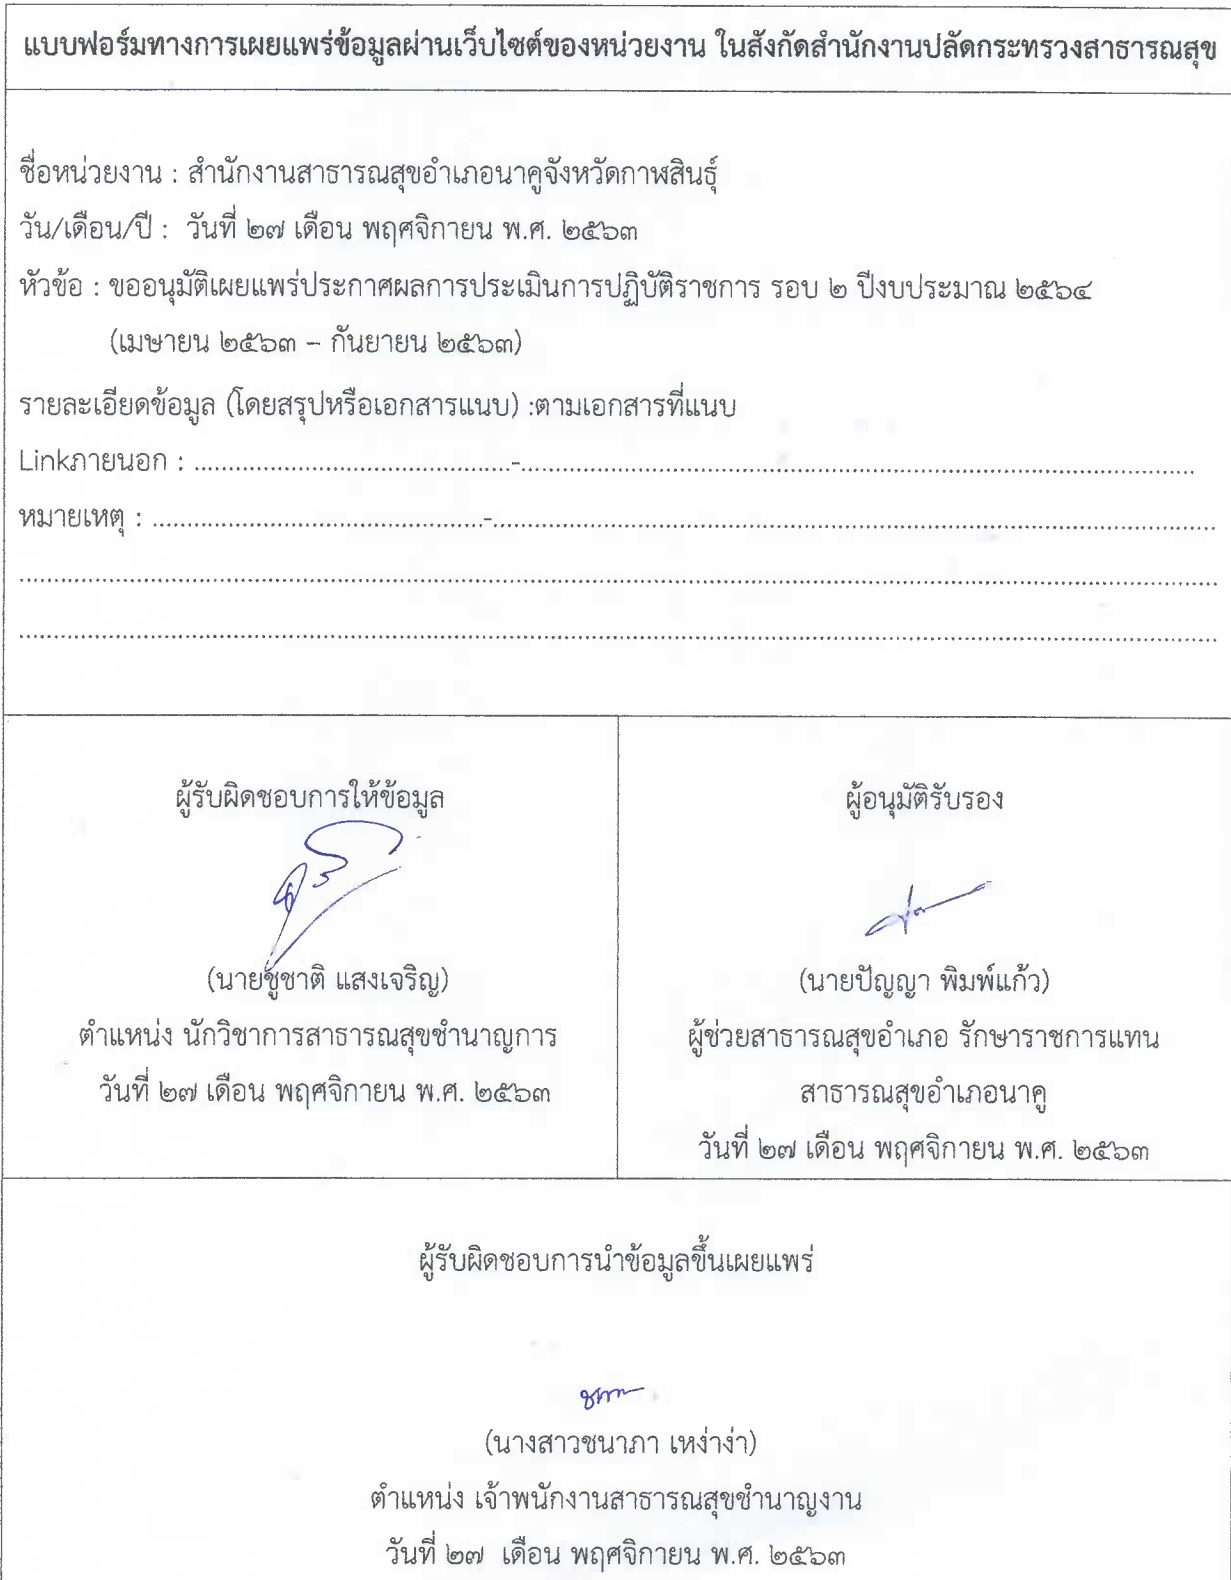 แบบฟอร์มทางการเผยแพร่ข้อมูลผ่านเว็บไซต์ของหน่วยงาน ในสังกัดสำนักงานปลัดกระทรวงสาธารณสุข
ชื่อหน่วยงาน : สำนักงานสาธารณสุขอำเภอนาคูจังหวัดกาฬสินธุ์
วัน/เดือน/ปี : วันที่ ๒๗ เดือน พฤศจิกายน พ.ศ. ๒๕๖๓
หัวข้อ : ขออนุมัติเผยแพร่ประกาศผลการประเมินการปฏิบัติราชการ รอบ ๒ ปีงบประมาณ ๒๕๖๔
(เมษายน ๒๕๖๓ – กันยายน ๒๕๖๓)
รายละเอียดข้อมูล (โดยสรุปหรือเอกสารแนบ) :ตามเอกสารที่แนบ
Linkภายนอก : ..............................................-....................................................................................................
หมายเหตุ : ................................................-...........................................................................................................
ผู้รับผิดชอบการให้ข้อมูล
(นายชูชาติ แสงเจริญ)
ตำแหน่ง นักวิชาการสาธารณสุขชำนาญการ
วันที่ ๒๗ เดือน พฤศจิกายน พ.ศ. ๒๕๖๓
ผู้อนุมัติรับรอง
(นายปัญญา พิมพ์แก้ว)
ผู้ช่วยสาธารณสุขอำเภอ รักษาราชการแทน
สาธารณสุขอำเภอนาคู
วันที่ ๒๗ เดือน พฤศจิกายน พ.ศ. ๒๕๖๓
ผู้รับผิดชอบการนำข้อมูลขึ้นเผยแพร่
(นางสาวชนาภา เหง่าง่า)
ตำแหน่ง เจ้าพนักงานสาธารณสุขชำนาญงาน
วันที่ ๒๗ เดือน พฤศจิกายน พ.ศ. ๒๕๖๓